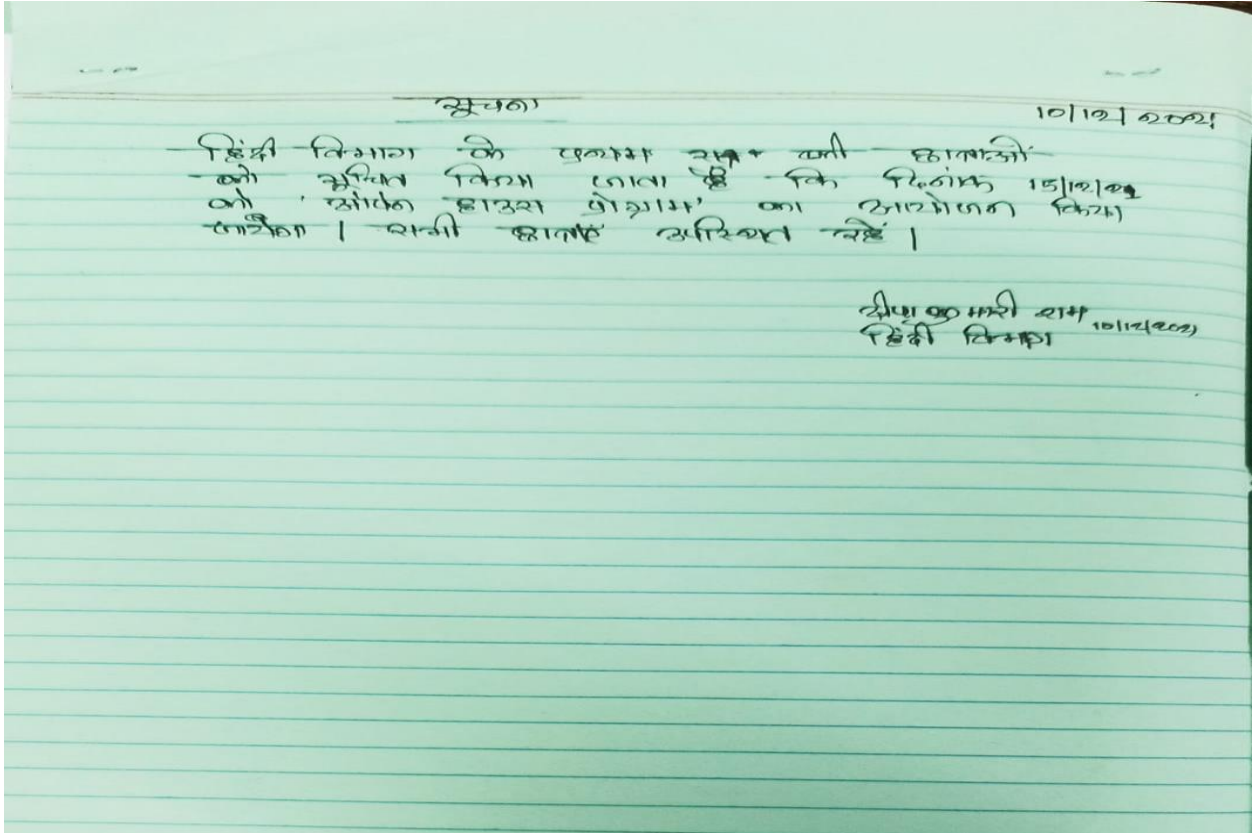 सूचना
10/12/2021
हिंदी विभाग के प्रथम सत्र की छात्राओं
को सूचित किया जाता है कि दिनांक 15/12/21
को 'ओपेन हाउस प्रोग्राम' का आयोजन किया
जायेगा । सभी छात्राएं उपस्थित रहें ।
दीपा कुमारी राम
10/12/2021
हिंदी विभाग